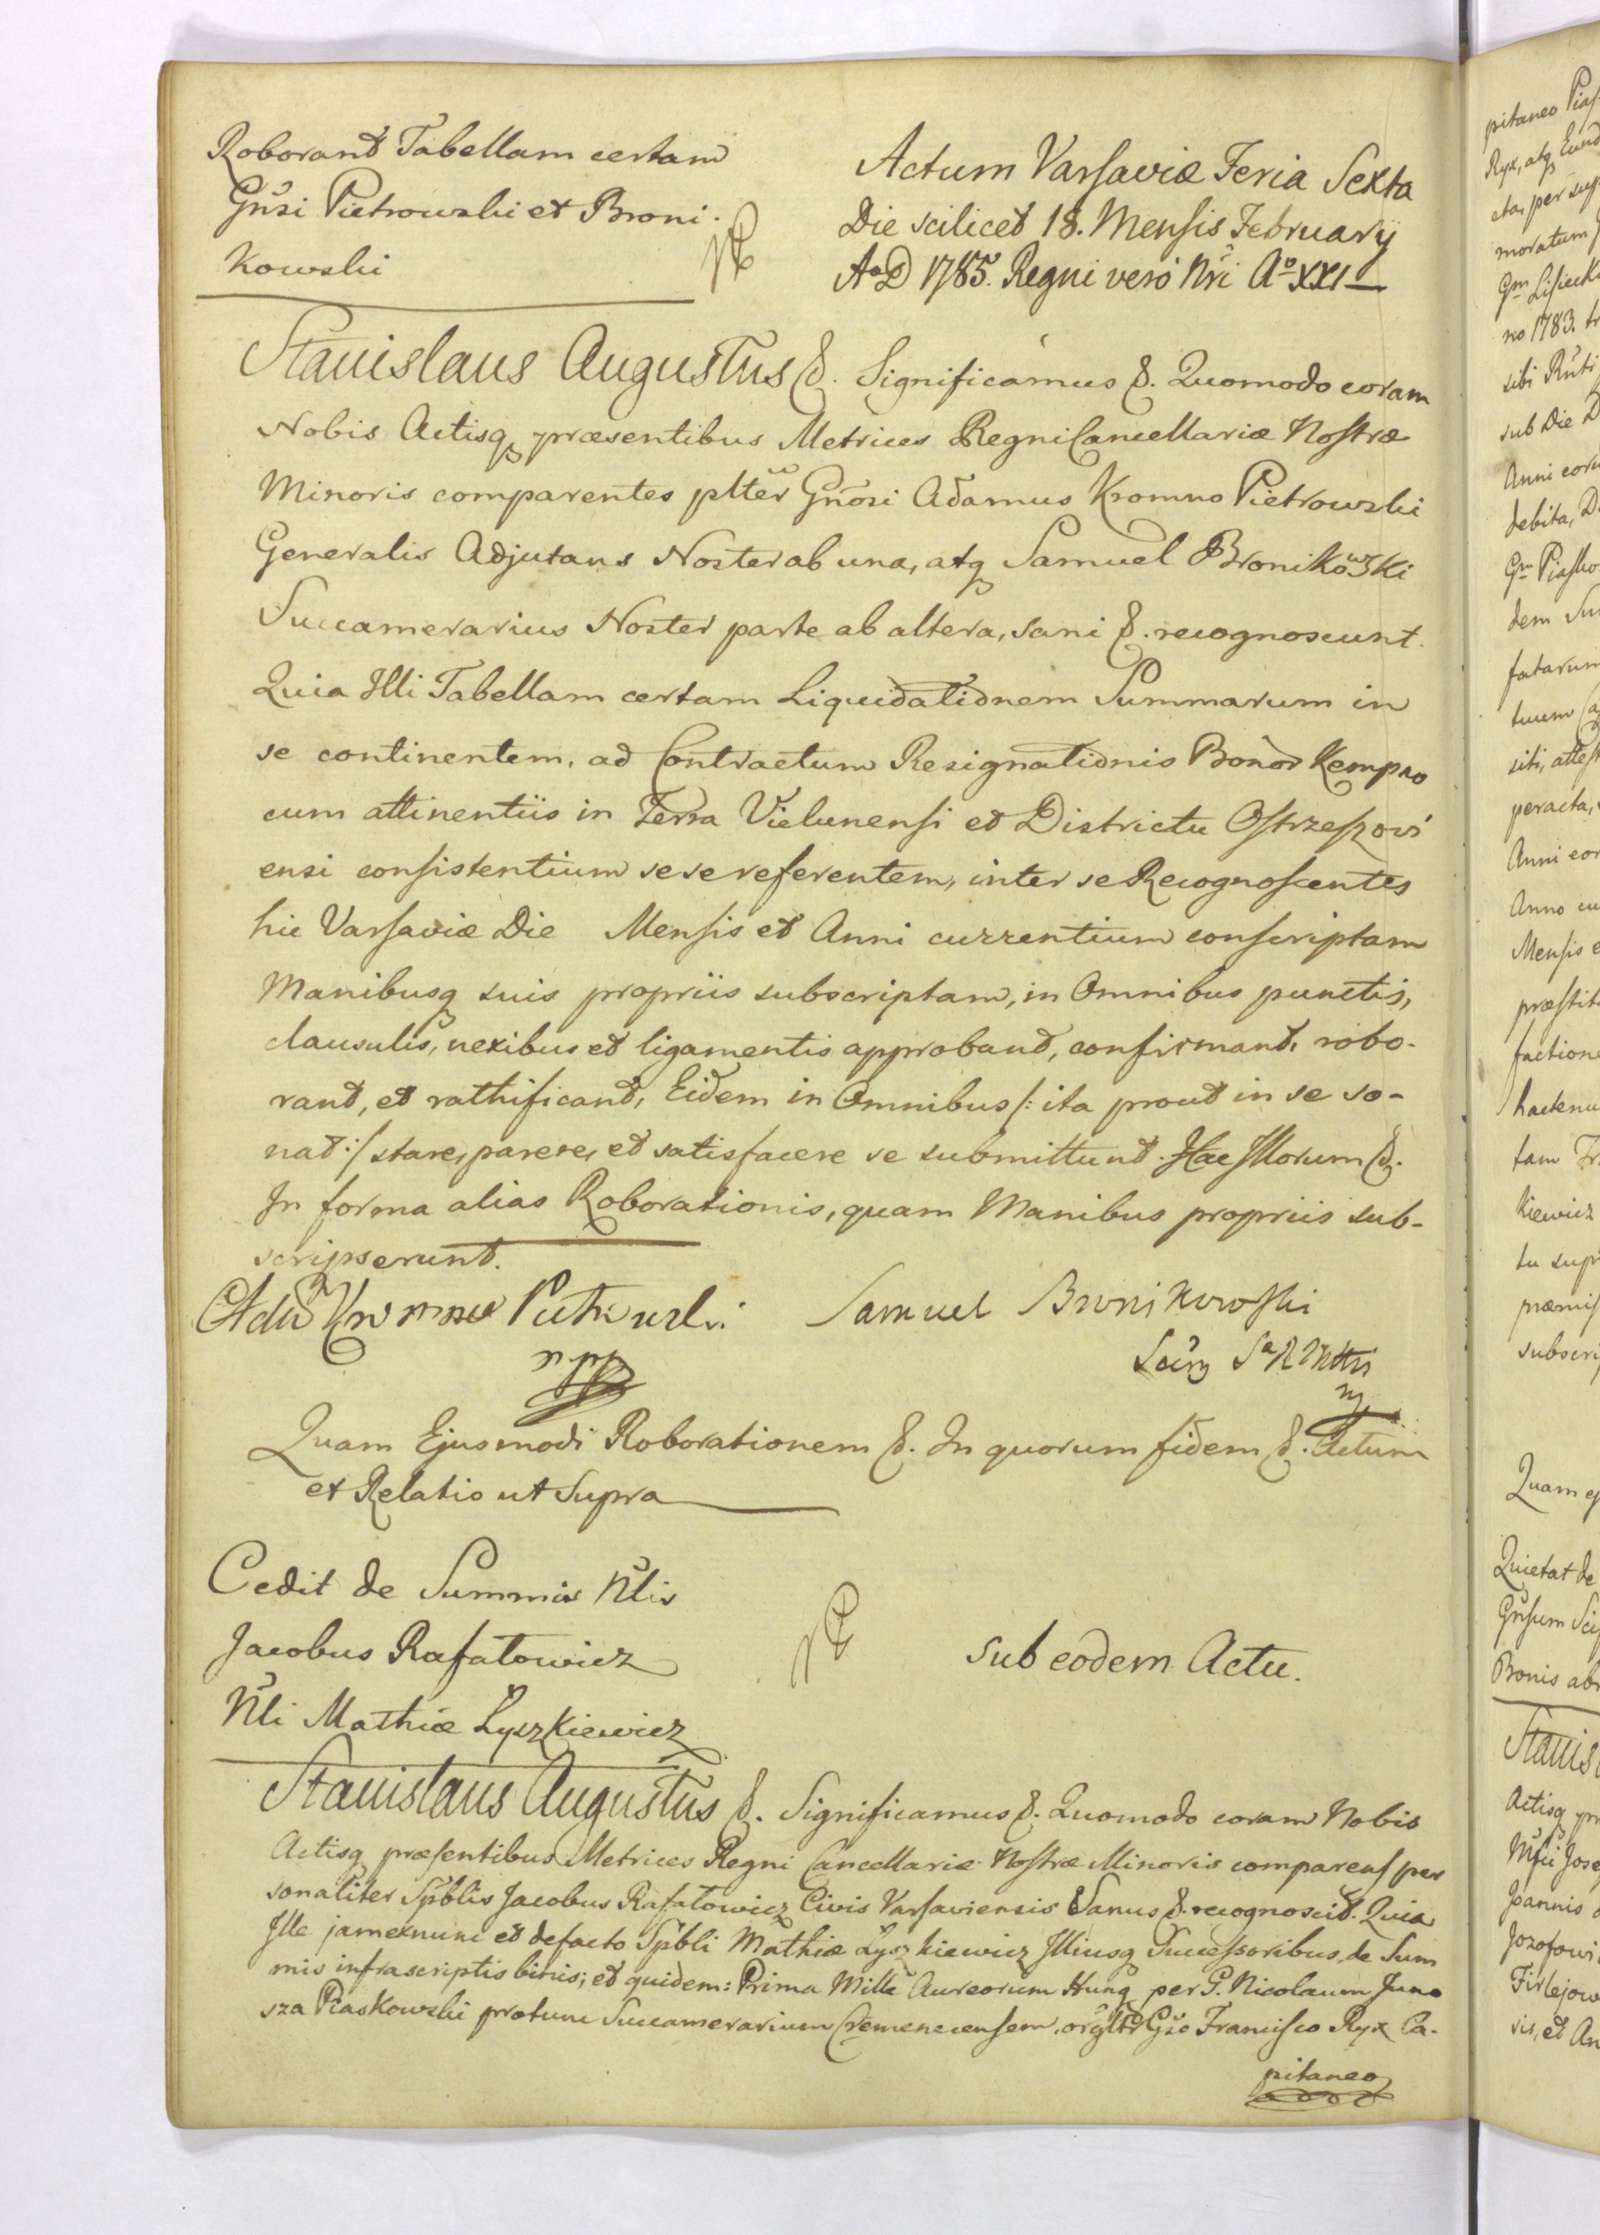 Roborant Tabellam certam
Gnŭsi Pietrowski et Broni-
kowski
Actum Varsaviæ Feria Sexta
Die scilicet 18. Mensis February
AoD 1785. Regni vero Nri Ao XXI
Stanislaus Augustus &. Significamus &. Quomodo coram
Nobis Actisq præsentibus Metrices Regni Cancellariæ Nostræ
Minoris comparentes pltĕr Gnŏsi Adamus Kromno Pietrowski
Generalis Adjutans Noster ab una, atq Samuel Bronikowski
Succamerarius Noster parte ab altera, sani &. recognoscunt.
Quia Illi Tabellam certam Liquidationem Summarum in
se continentem, ad Contractum Resignationis Bonor Kempno
cum attinentiis in Terra Vielunensi et Districtu Ostrzeszovi
ensi consistentium sese referentem, inter se Recognoscentes
hic Varsaviæ Die Mensis et Anni currentium conscriptam
Manibusq suis propriis subscriptam, in Omnibus punctis,
clausulis, nexibus et ligamentis approbant, confirmant, robo-
rant, et rathificant, Eidem in Omnibus /: ita prout in se so-
nat :/ stare, parere, et satisfacere se submittunt. Hac Illorum &.
In forma alias Roborationis, quam Manibus propriis sub-
scripserunt.
Samuel Bronikowski
Quam Ejusmodi Roborationem &. In quorum fidem &. Actum
et Relatio ut Supra
Cedit de Summis Nlis
Jacobus Rafałowicz
Nli Mathiæ Łyszkiewicz
Sub eodem Actu.
Stanislaus Augustus &. Significamus &. Quomodo coram Nobis
Actisq præsentibus Metrices Regni Cancellariæ Nostræ Minoris comparens per
sonaliter Spblis Jacobus Rafałowicz Civis Varsaviensis Sanus &. recognoscit. Quia
Ille jam exnunc et defacto Spbli Mathiæ Łyszkiewicz Illiusq Successoribus, de Sum
mis infrascriptis binis; et quidem: Prima Mille Aureorum Hung per G. Nicolaum Juno
sza Piaskowski protunc Succamerarium Cremenecensem, orgltr Gso Francisco Ryx Ca-
pitaneo